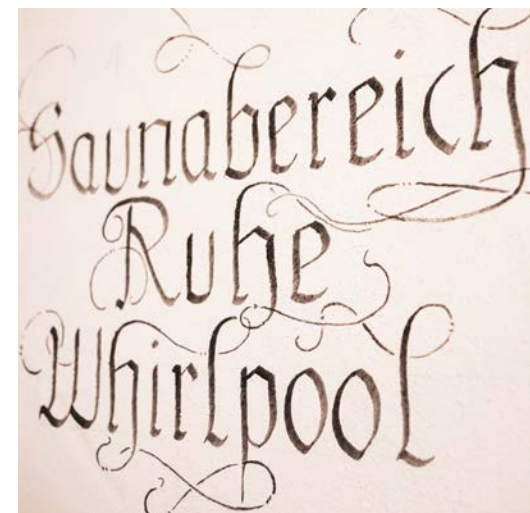 Saunabereich
Ruhe
Whirlpool